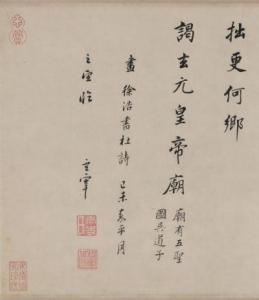 拙更何鄉
謁玄元皇帝廟
廟有五聖
圖吳道子
畫
徐浩書杜詩
己未嘉平月
玄宰